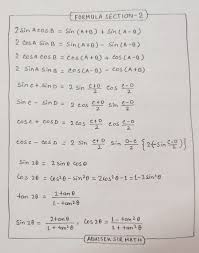 FORMULA SECTION-2
2 sinA cosB = sin(A+B) + sin(A-B)
2 cosA sinB = sin(A+B) - sin(A-B)
2 cosA cosB = cos(A+B) + cos(A-B)
2 sinA sinB = cos(A-B) - cos(A+B)
sinC + sinD = 2 sin (C+D)/2 cos (C-D)/2
sinC - sinD = 2 cos (C+D)/2 sin (C-D)/2
cosC + cosD = 2 cos (C+D)/2 cos (C-D)/2
cosC - cosD = 2 sin (C+D)/2 sin (D-C)/2
sin 2θ = 2 sinθ cosθ
cos 2θ = cos²θ - sin²θ = 2cos²θ - 1 = 1 - 2sin²θ
tan 2θ = 2tanθ / 1 - tan²θ
sin 2θ = 2tanθ / 1 + tan²θ , cos 2θ = 1 - tan²θ / 1 + tan²θ
ABHISEK SIR MATH